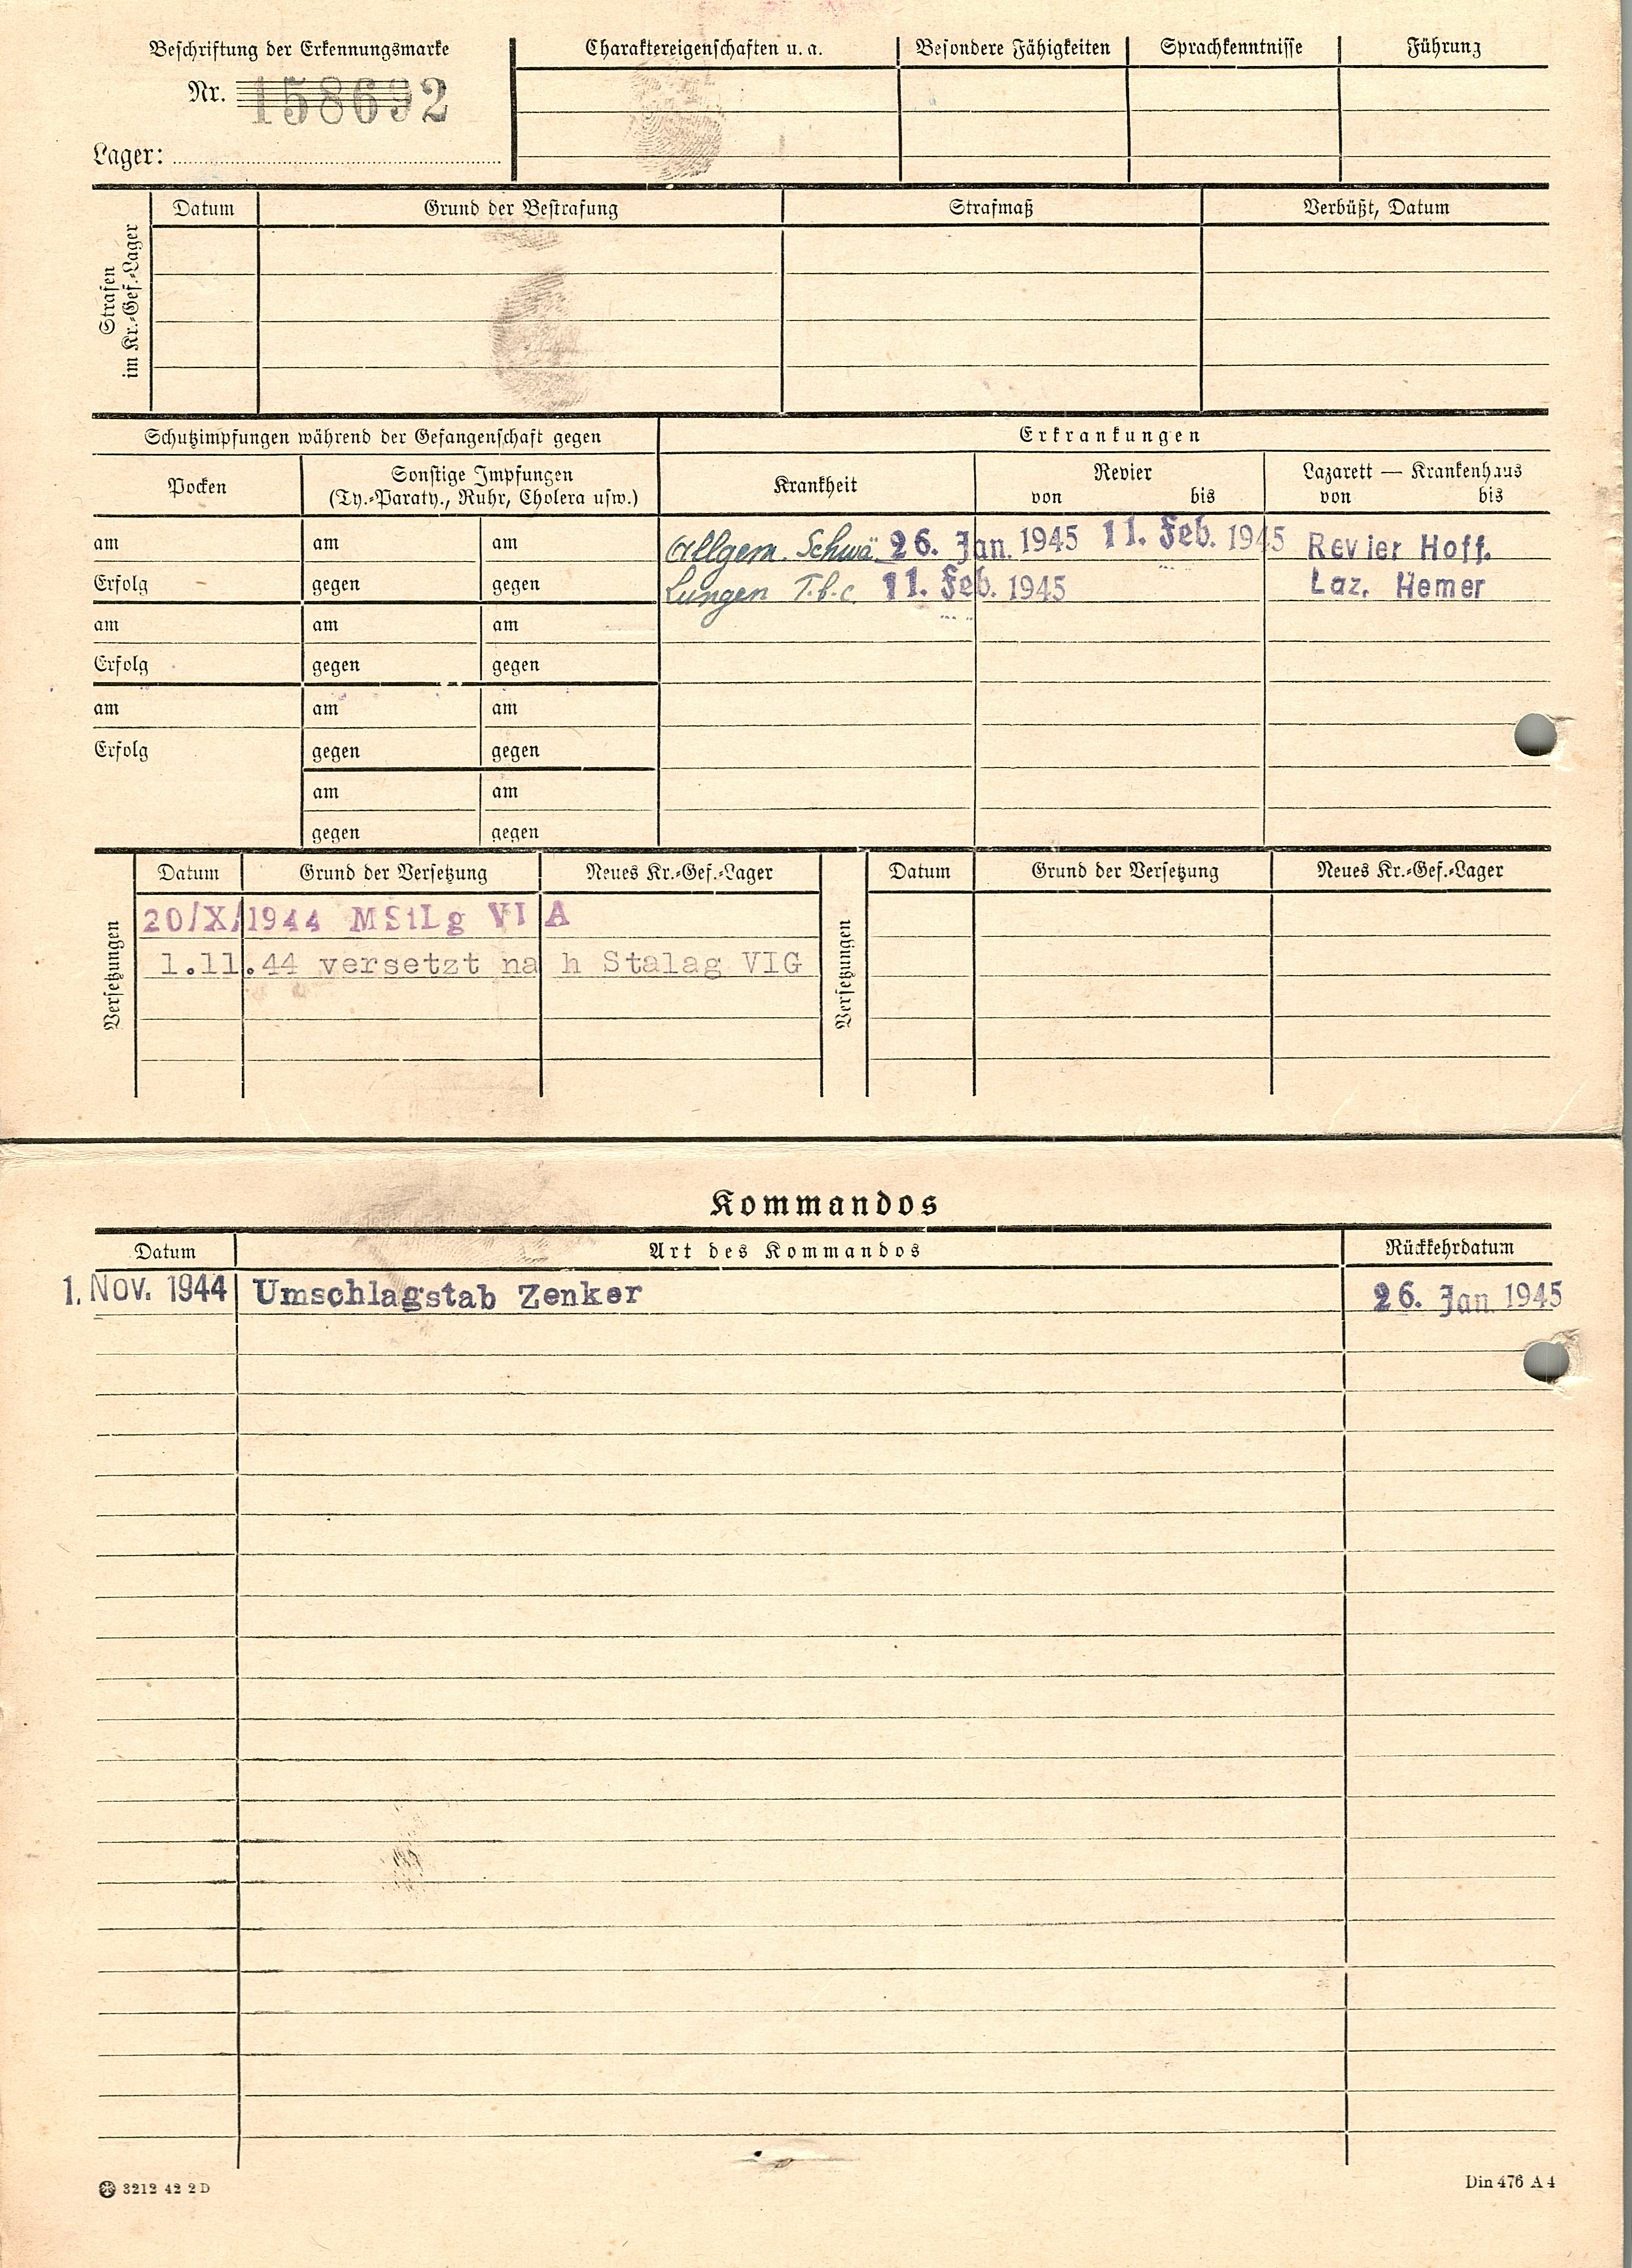 Beschriftung der Erkennungsmarke
Nr. 158692
Lager:
Charaktereigenschaften u. a. Besondere Fähigkeiten Sprachkenntnisse Führung
Strafen
im Kr.-Gef.-Lager
Datum Grund der Bestrafung Strafmaß Verbüßt, Datum
Schutzimpfungen während der Gefangenschaft gegen Erkrankungen
Pocken Sonstige Impfungen
(Ty.-Paraty., Ruhr, Cholera usw.)
Krankheit Revier
von bis
Lazarett — Krankenhaus
von bis
am am am Allgem. Schwä. 26. Jan. 1945 11. Feb. 1945 Revier Hoff.
Erfolg gegen gegen Lungen T.b.c. 11. Feb. 1945 Laz. Hemer
am am am
Erfolg gegen gegen
am am am
Erfolg gegen gegen
am am
gegen gegen
Versetzungen
Datum Grund der Versetzung Neues Kr.-Gef.-Lager
20/X/1944 MStLg VI A
1.11.44 versetzt na h Stalag VIG
Versetzungen
Datum Grund der Versetzung Neues Kr.-Gef.-Lager
Kommandos
Datum Art des Kommandos Rückkehrdatum
1. Nov. 1944 Umschlagstab Zenker 26. Jan 1945
3212 42 2 D
Din 476 A 4